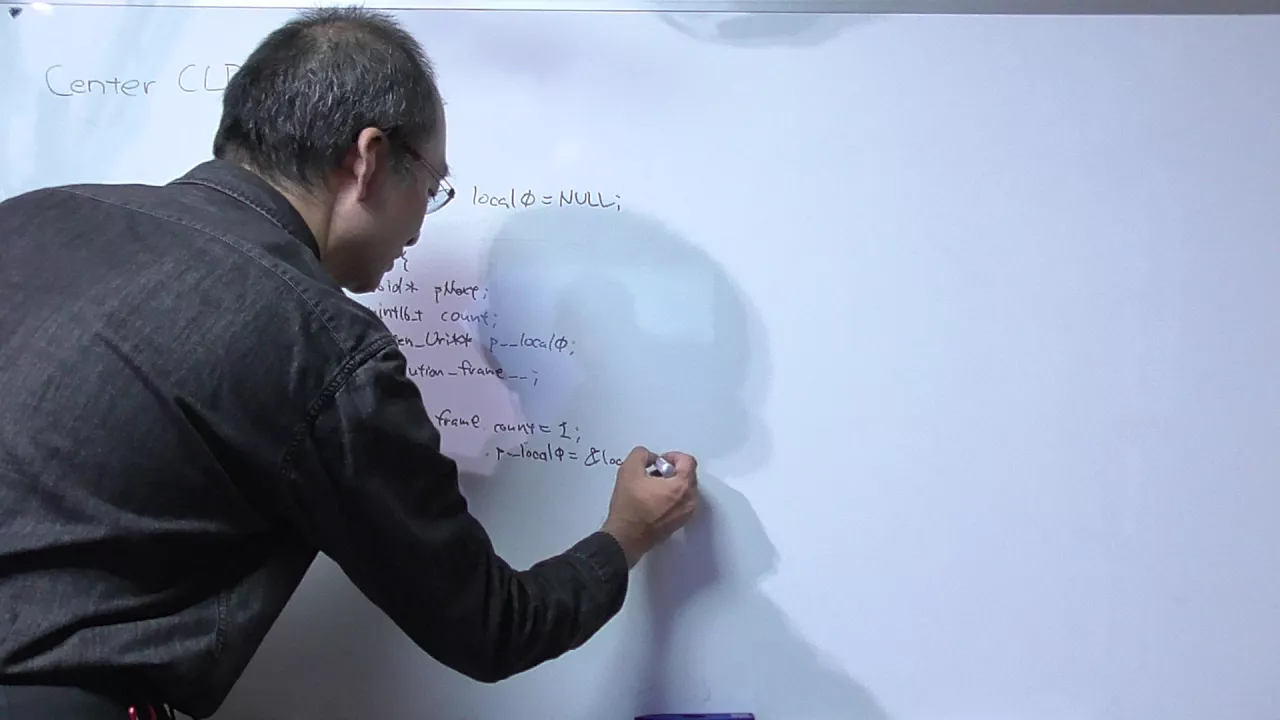 Center CL
localφ = NULL;
{
oid* pNext;
uint16_t count;
p__localφ;
ution_frame__;
frame.count = 1;
.p__localφ = &loc